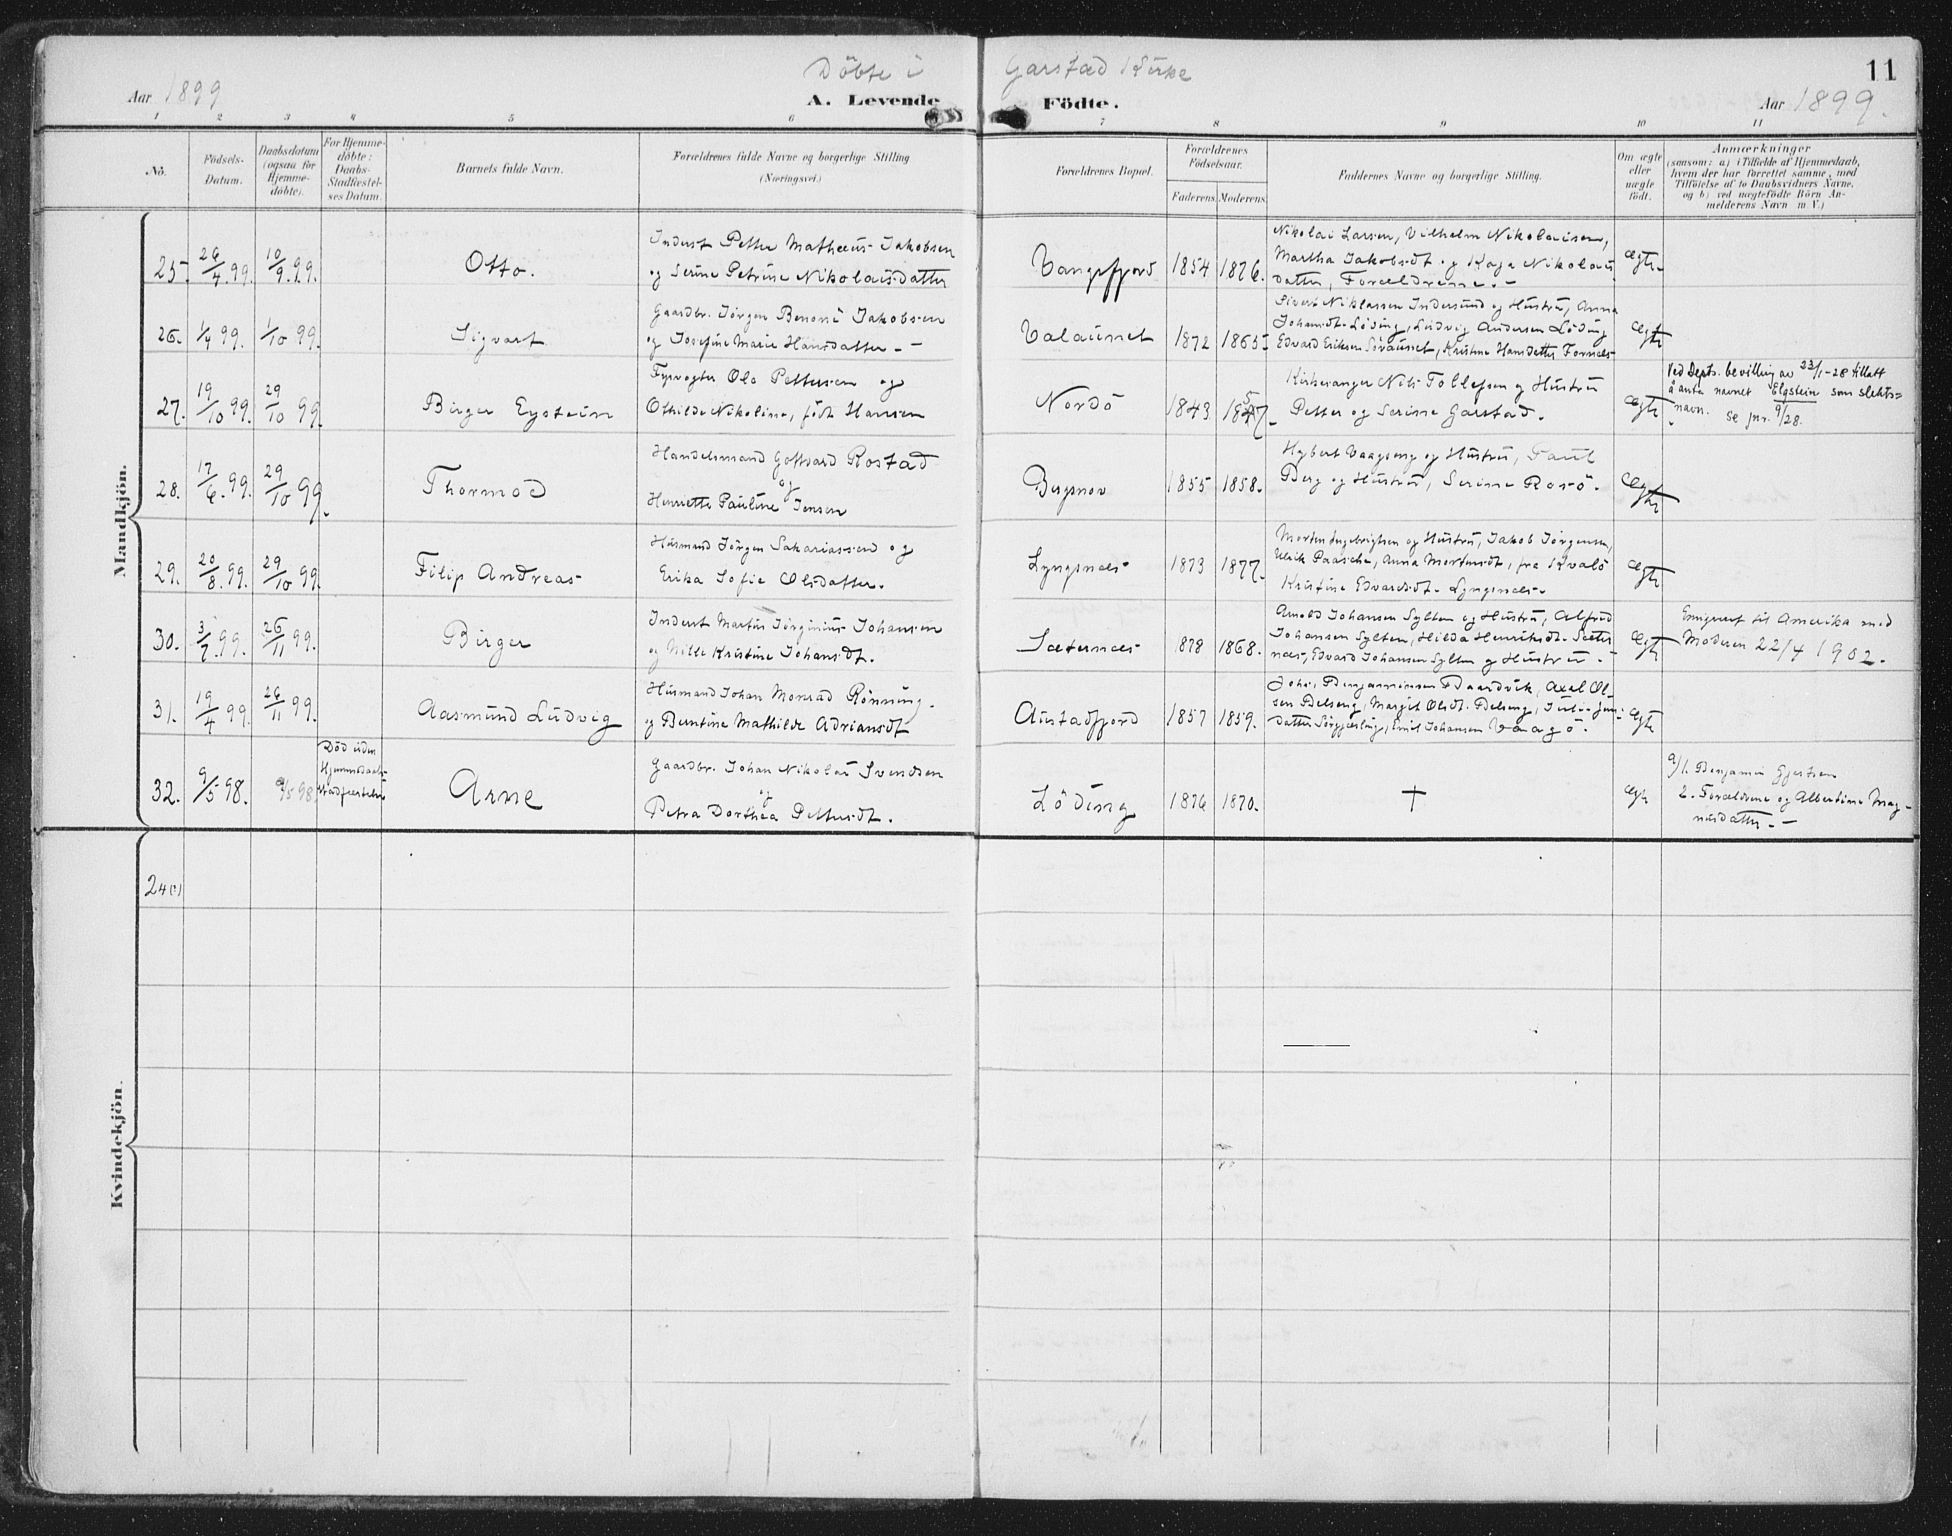 Döbte i Garstad Kirke
11
Aar 1899
A. Levende Födte.
Aar 1899.
1 2 3 4 5 6 7 8 9 10 11
No.
Födsels-
Datum.
Daabsdatum
(ogsaa for
Hjemme-
döbte).
For Hjemme-
döbte:
Daabs-
Stadfæstel-
ses Datum.
Barnets fulde Navn.
Forældrenes fulde Navne og borgerlige Stilling
(Næringsvei.)
Forældrenes Bopæl.
Forældrenes
Födselsaar.
Faderens Moderens
Faddernes Navne og borgerlige Stilling.
Om ægte
eller
uægte
födt.
Anmærkninger
(saasom: a) i Tilfælde af Hjemmedaab,
hvem der har forrettet samme, med
Tilföielse af to Daabsvidners Navne,
og b) ved uægtefödte Börn An-
melderens Navn m. V.)
Mandkjön.
25. 26/4 99. 10/9 99.
Otto.
Inderst Petter Matheus Jakobsen
og Serine Petrine Nikolausdatter
Vangsfjord 1854 1876.
Nikolai Larsen, Vilhelm Nikolaisen,
Martha Jakobsdt og Kaja Nikolaus
datter, Forældrene. -
Ægte
26. 1/4 99. 1/10 99.
Sigvart
Gaardbr. Jörgen Benoni Jakobsen
og Josefine Marie Hansdatter. -
Valaunet 1872 1865
Sivert Niklassen Indersund og Hustru, Anna
Johansdt Löding, Ludvig Andersen Löding
Edvard Eriksen Söraunet, Kristine Hansdatter Fornæs
Ægte
27. 19/10 99. 29/10 99.
Birger Eystein
Fyrvogter Ole Pettersen og
Othilde Nikoline, födt Hansen
Nordö 1843 1857.
Kirkesanger Nils Tollefsen og Hustru
Petter og Serine Garstad.
Ægte
Ved Depts. bevilling av 23/1-28 tillatt
å anta navnet Elgstein som slekts=
navn. se jnr. 9/28.
28. 17/6 99. 29/10 99.
Thormod
Handelsmand Gotvard Rostad
og
Henriette Pauline Jensen
Bergsnov 1855 1858.
Hybert Vaagseng og Hustru, Paul
Berg og Hustru, Serine Rosö.
Ægte
29. 20/8 99. 29/10 99.
Filip Andreas
Husmand Jörgen Sakariassen og
Erika Sofie Olsdatter.
Lyngsnes 1873 1877.
Morten Ingebrigtsen og Hustru, Jakob Jörgensen,
Ulrik Paasche, Anna Mortensdt, fra Kvalö
Kristine Edvardsdt. Lyngsnæs.
Ægte
30. 3/7 99. 26/11 99.
Birger
Inderst Martin Jörginius Johansen
og Nille Kristine Johansdt.
Sæternæs 1878 1868.
Arnold Johansen Sylten og Hustru, Alfred
Johansen Sylten, Hilda Henriksdt. Sæter
næs, Edvard Johansen Sylten og Hustru -
Ægte
Emigreret til Amerika med
Moderen 22/4 1902.
31. 19/4 99. 26/11 99.
Aasmund Ludvig
Husmand Johan Monrad Rönning.
og Berntine Mathilde Adriansdt
Austadfjord 1857 1859.
Johs. Benjaminsen Daardvik, Axel Ol
sen Belseng, Margit Olsdt. Belseng, Juli Jens
datter Sörgjæsling, Emil Johansen Vaagö.
Ægte
32. 9/5 98. 9/5 98.
Död uden
Hjemmedaabs
stadfæstelse
Arne
Gaardbr. Johan Nikolai Svendsen
og
Petra Dorthea Pettersdt.
Löding 1876 1870.
†
Ægte
9/1. Benjamin Gjertsen
2. Forældrene og Albertine Mag-
nusdatter. -
Kvindekjön.